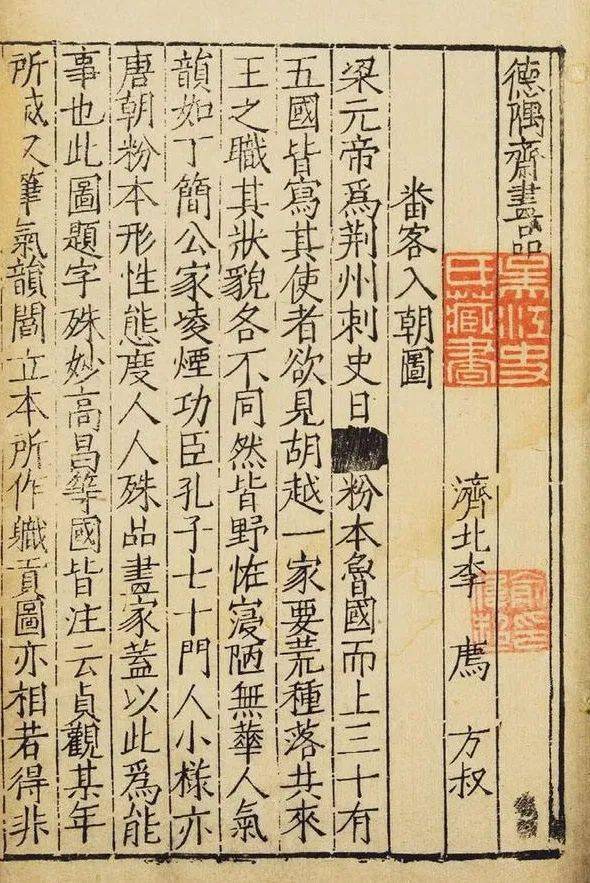 德隅齋畫品
濟北李 廌 方叔
番客入朝圖
梁元帝爲荆州刺史日粉本魯國而上三十有
五國皆寫其使者欲見胡越一家要荒種落共來
王之職其狀貌各不同然皆野恠寢陋無華人氣
韻如丁簡公家凌煙功臣孔子七十門人小樣亦
唐朝粉本形性態度人人殊品畫家蓋以此爲能
事也此圖題字殊妙高昌等國皆注云貞觀某年
所成又筆氣韻閻立本所作職貢圖亦相若得非
氏藏書